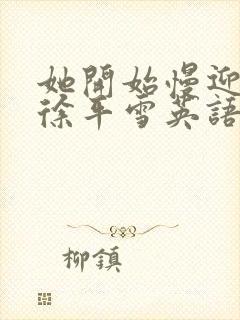 她開始慢迎
徐平雪英語
柳鎮